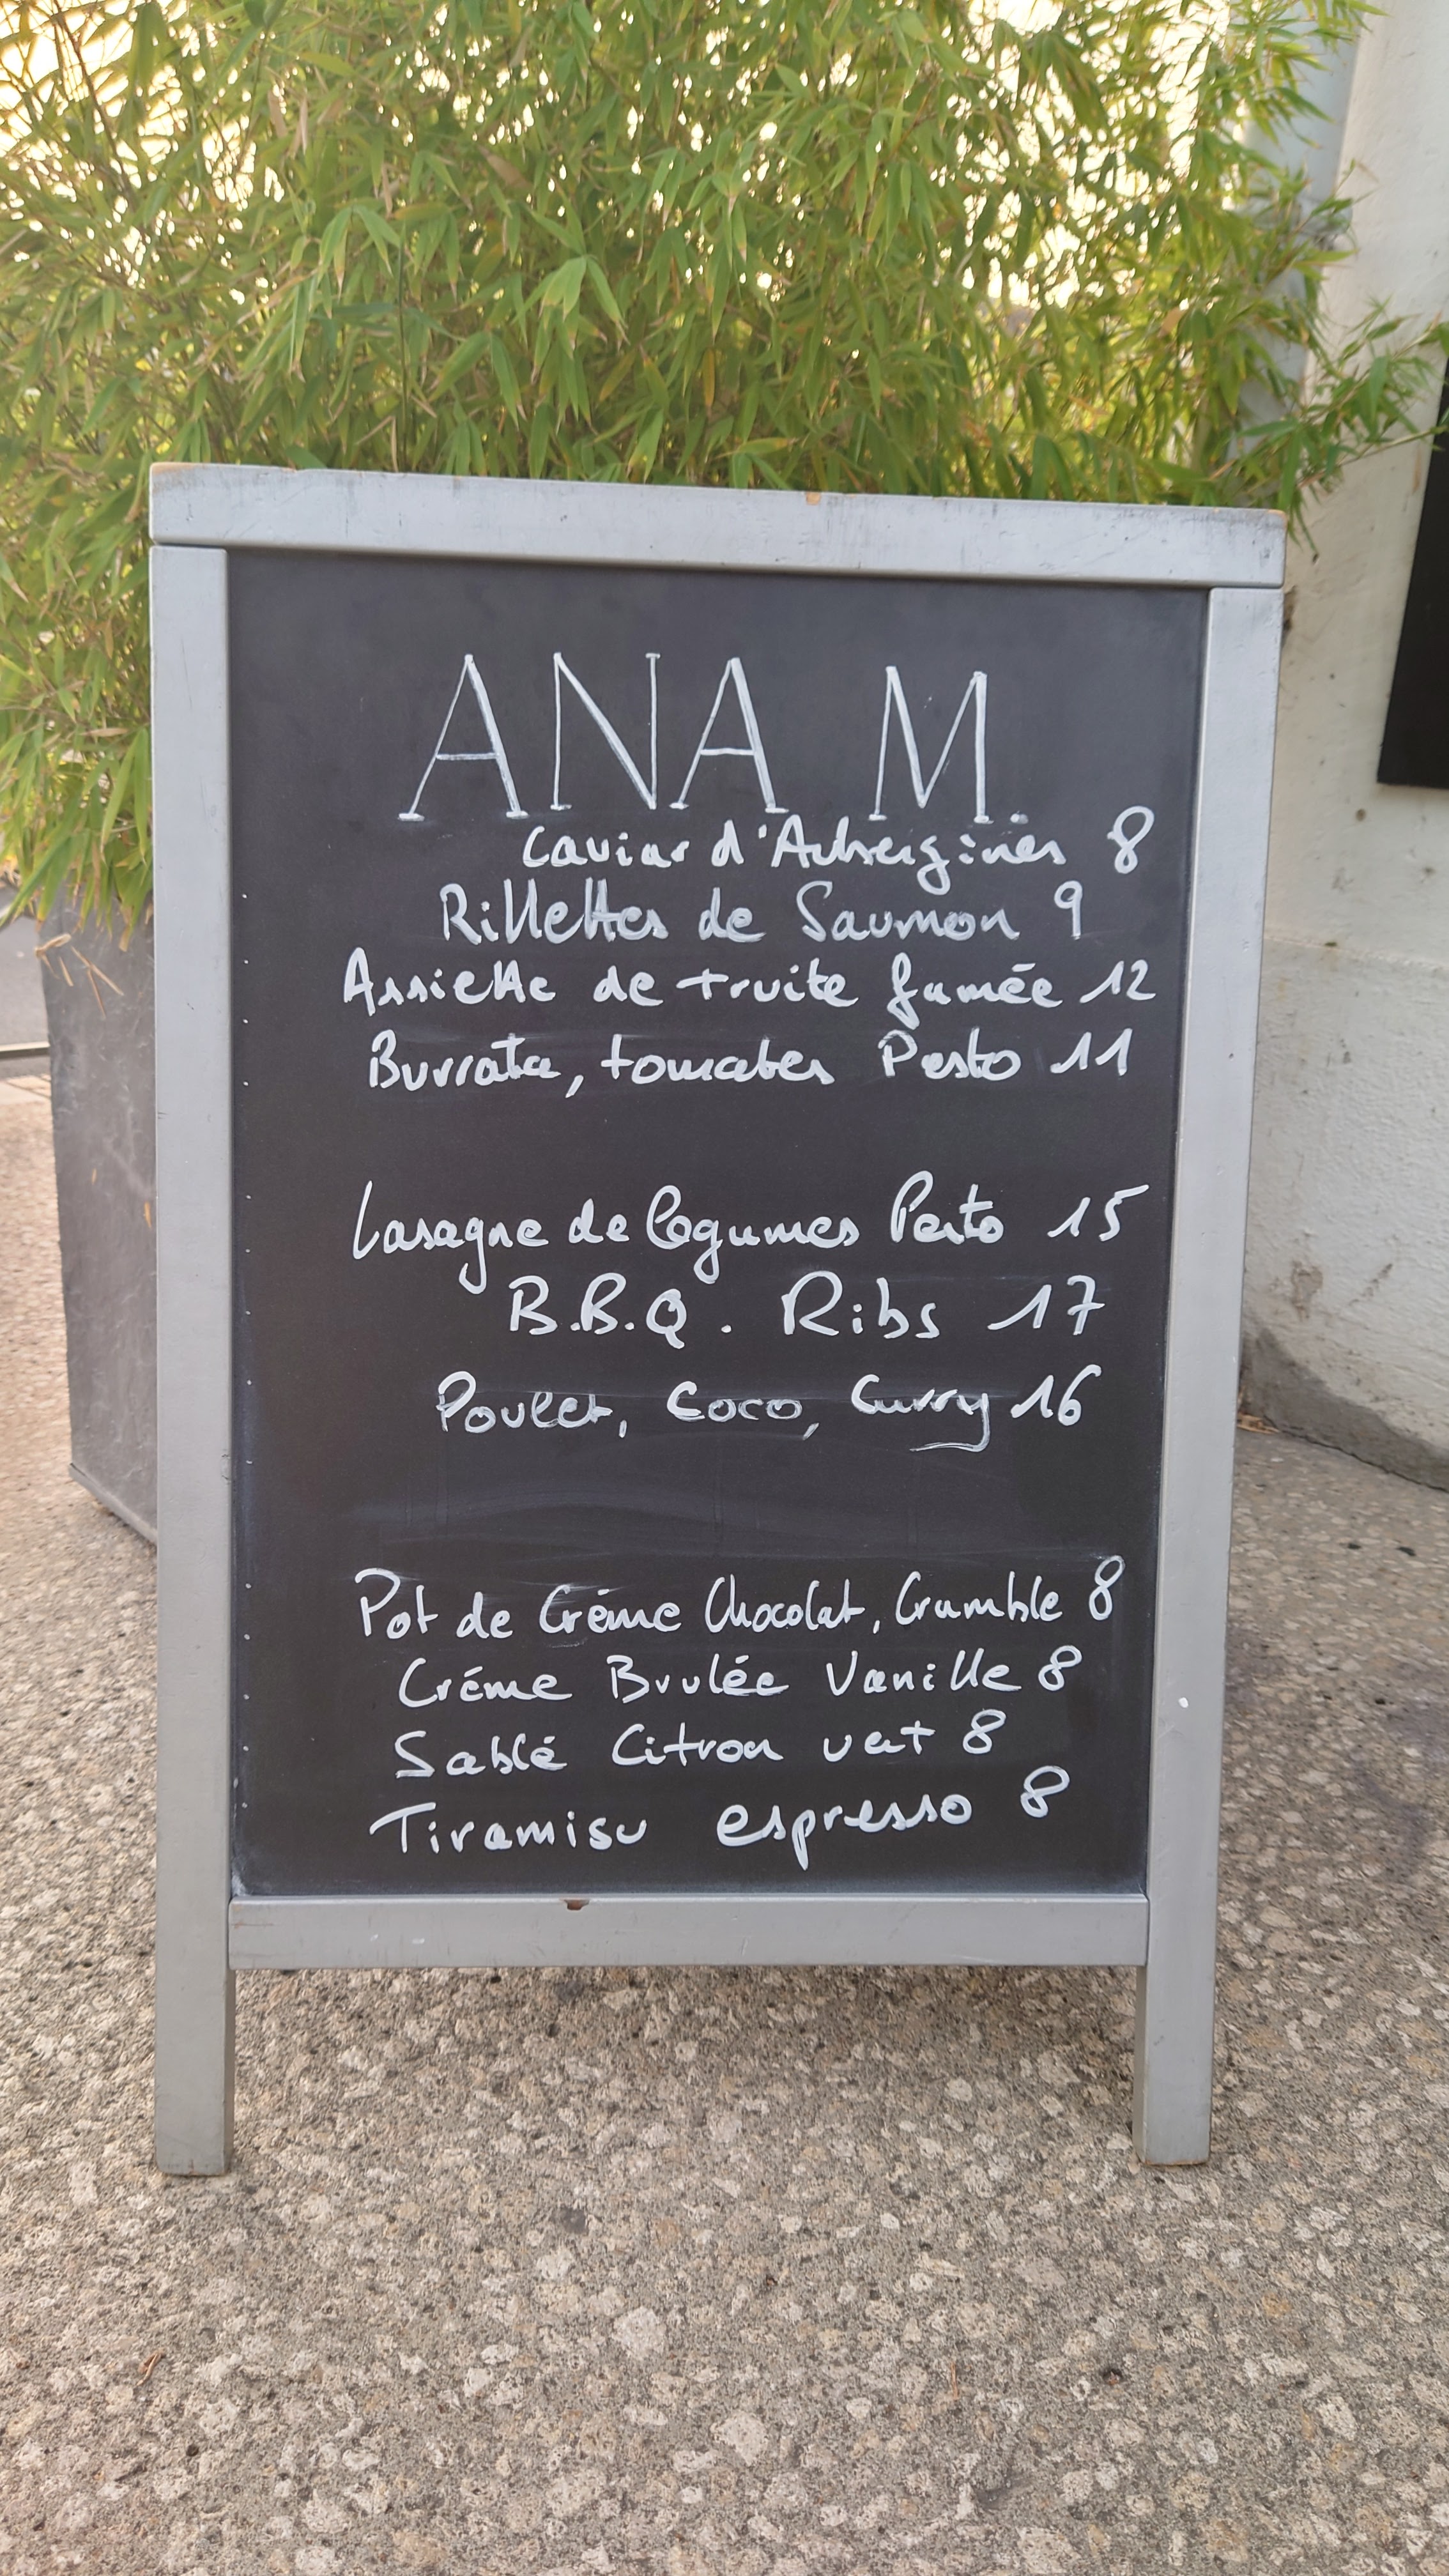 ANA M.
Caviar d'Aubergines 8
Rillettes de Saumon 9
Assiette de truite fumée 12
Burrata, tomates Pesto 11
Lasagne de légumes Pesto 15
B.B.Q. Ribs 17
Poulet, Coco, Curry 16
Pot de Crème Chocolat, Crumble 8
Créme Brulée Vanille 8
Sablé Citron vert 8
Tiramisu espresso 8